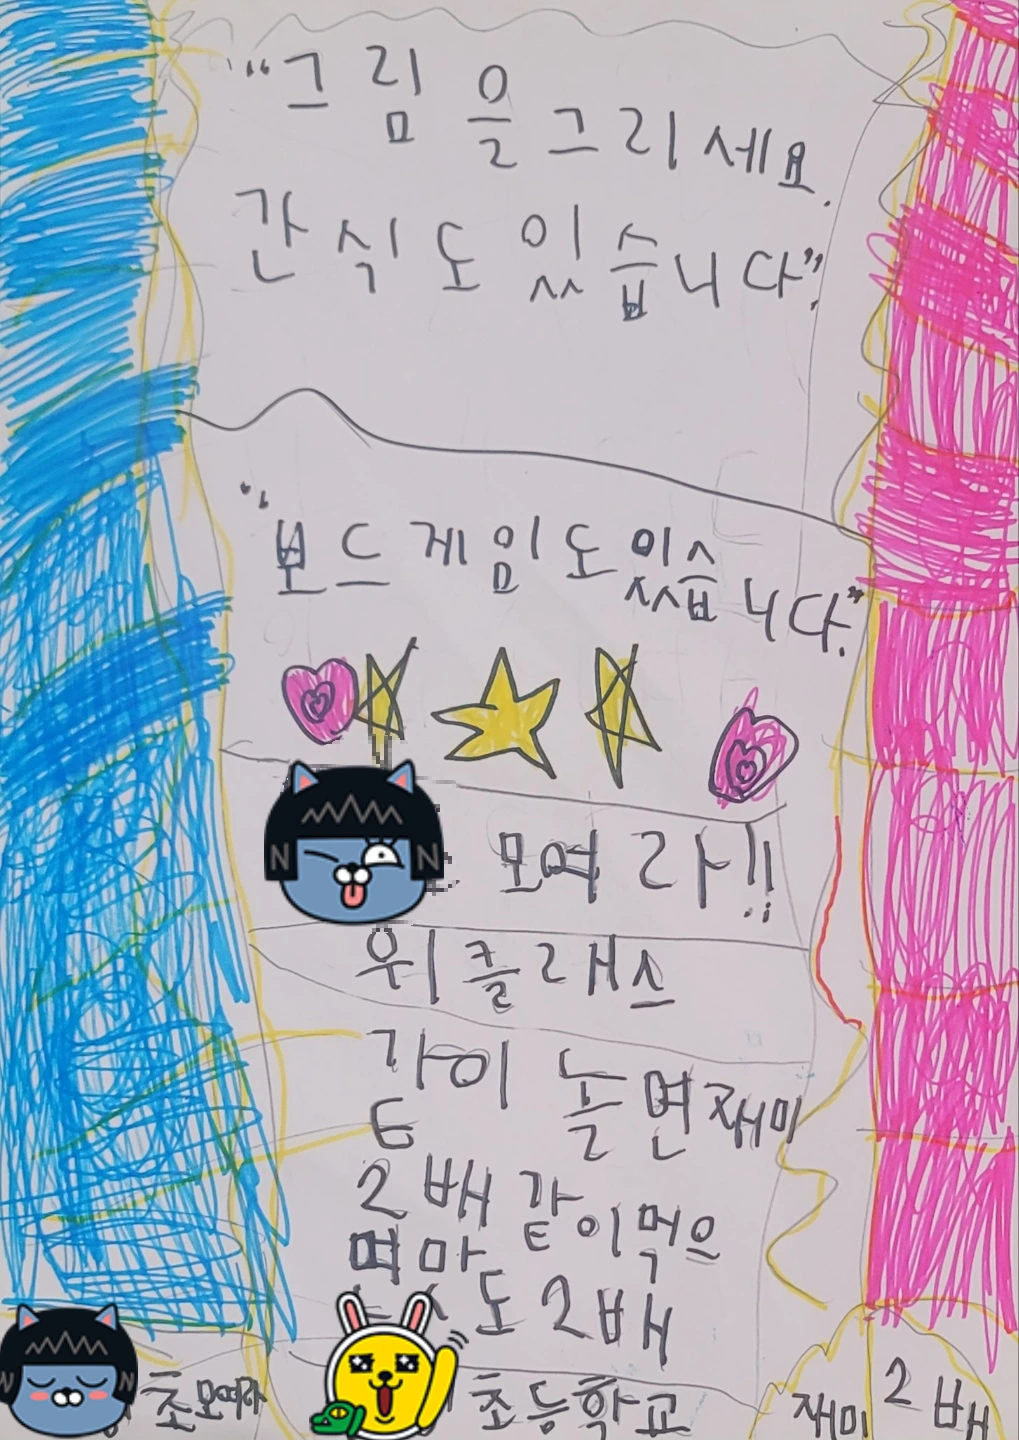 "그림을그리세요.
간식도 있습니다".
"보드게임도있습니다".
모여라!!
위클래스
같이 놀면재미
2배 같이먹으
면맛도2배
초모여라
초등학교
재미2배